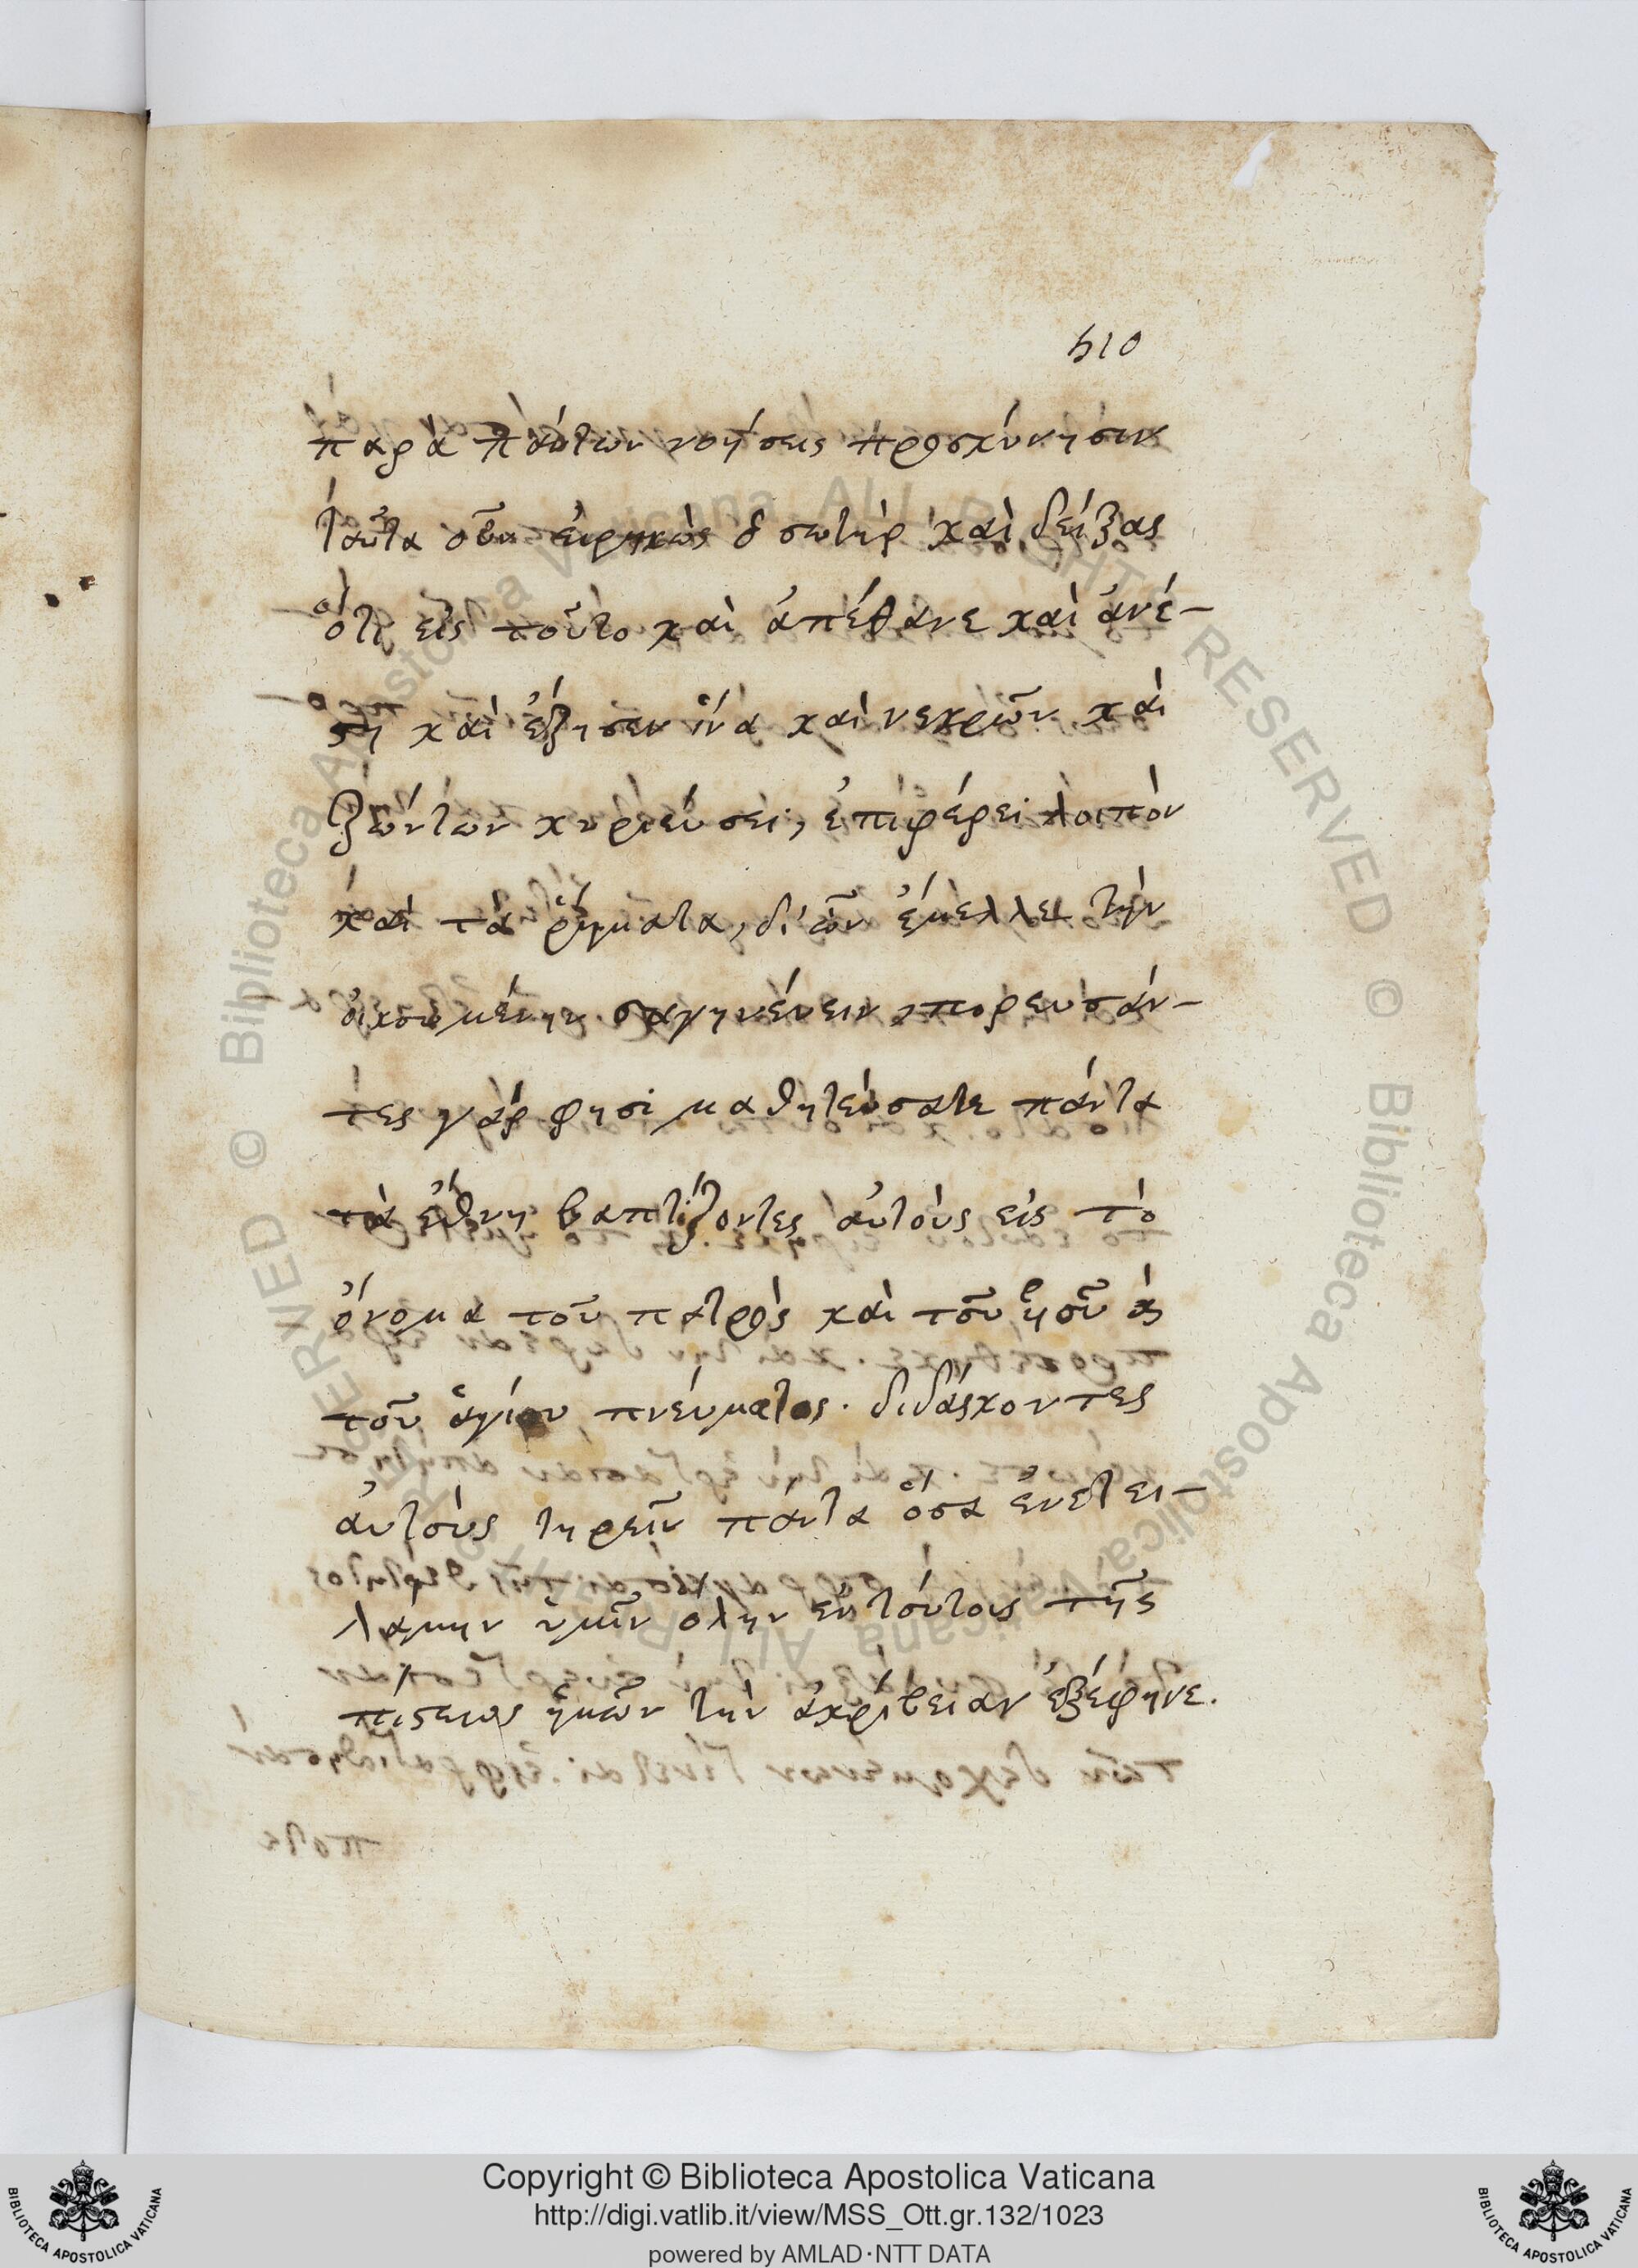 510
παρὰ πάντων νοήσεις προσκύνησιν
ταῦτα οὖν εἰρηκὼς ὁ σωτὴρ καὶ δείξας
ὅτι εἰς τοῦτο καὶ ἀπέθανε καὶ ἀνέ-
στη καὶ ἔζησεν ἵνα καὶ νεκρῶν καὶ
ζώντων κυριεύσει, ἐπιφέρει λοιπὸν
καὶ τὰ ῥήματα, δι' ὧν ἔμελλε τὴν
οἰκουμένην σαγηνεύειν, πορευσάν-
τες γάρ φησι μαθητεύσατε πάντα
τὰ ἔθνη βαπτίζοντες αὐτοὺς εἰς τὸ
ὄνομα τοῦ πατρὸς καὶ τοῦ
τοῦ ἁγίου πνεύματος. διδάσκοντες
αὐτοὺς τηρεῖν πάντα ὅσα ἐνετει-
λάμην ὑμῖν ὅλην ἐν τούτοις τῆς
πίστεως ἡμῶν τὴν ἀκρίβειαν ἐξέφηνε.
Copyright © Biblioteca Apostolica Vaticana
http://digi.vatlib.it/view/MSS_Ott.gr.132/1023
powered by AMLAD·NTT DATA
BIBLIOTECA APOSTOLICA VATICANA
BIBLIOTECA APOSTOLICA VATICANA